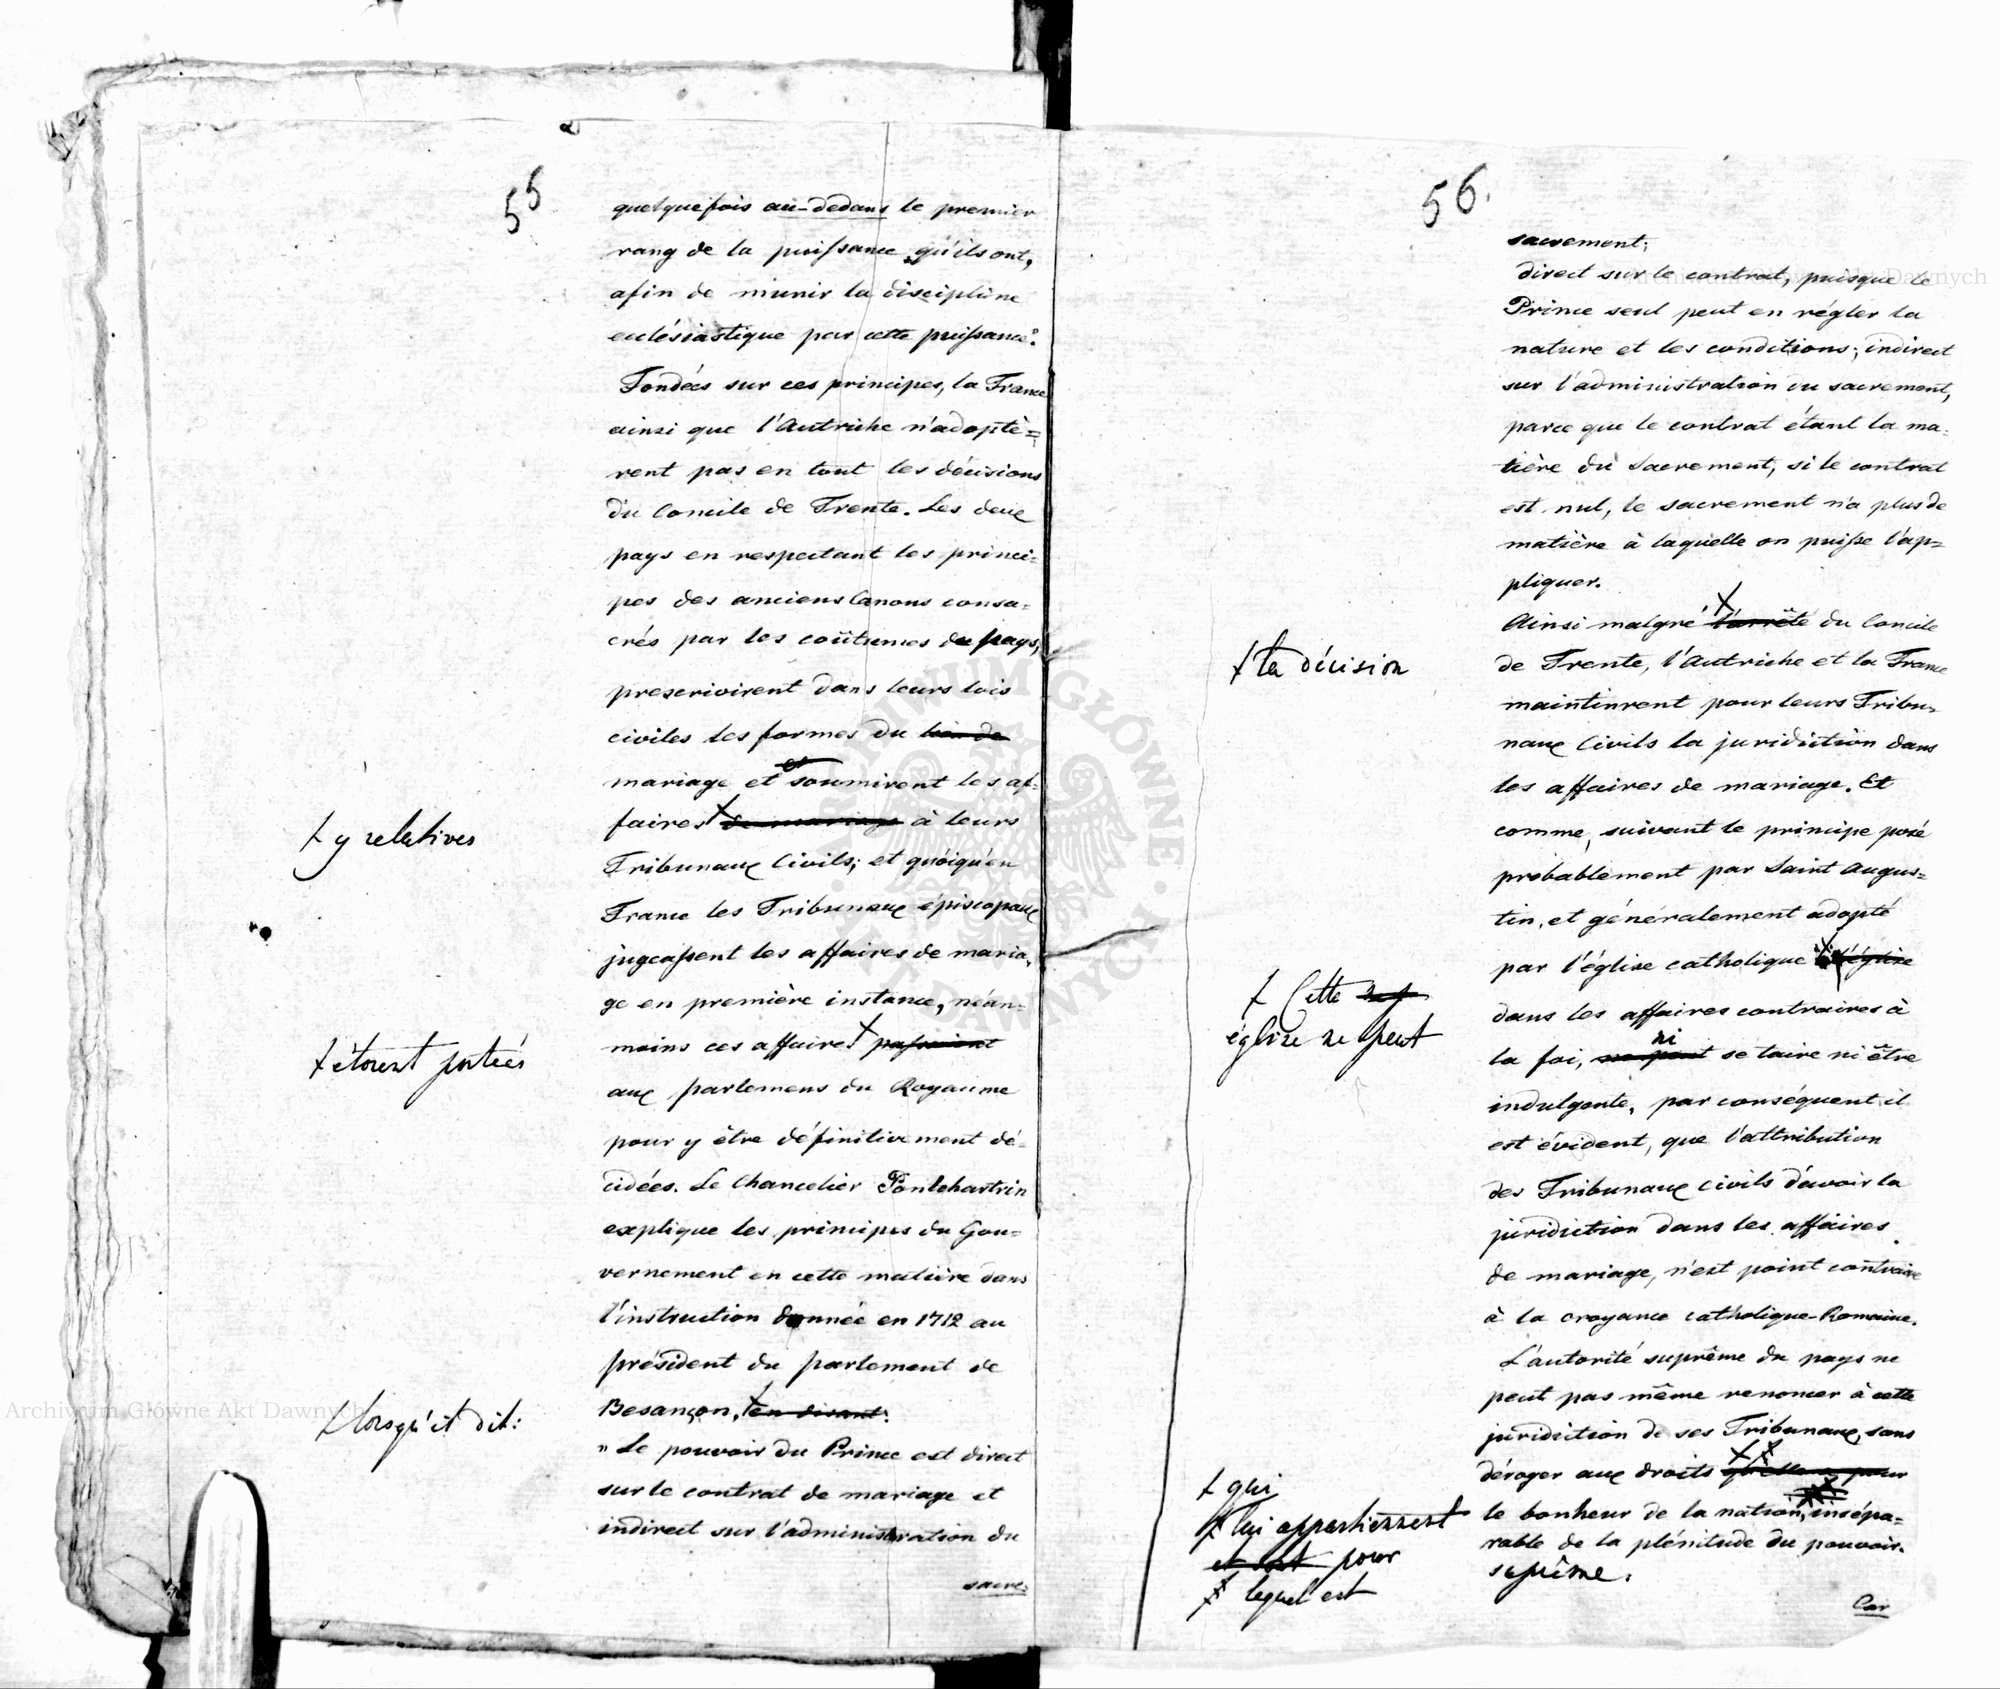 55
quelquefois au-dedans le premier
rang de la puissance qu'ils ont,
afin de munir la discipline
ecclésiastique par cette puissance."
Fondées sur ces principes, la France
ainsi que l'Autriche n'adoptè=
rent pas en tout les décisions
du Concile de Trente. Les deux
pays en respectant les princi-
pes des anciens Canons consa-
crés par les coûtumes du pays,
prescrivirent dans leurs lois
civiles les formes du lien de
mariage et soumirent les af-
faires de mariage à leurs
† y relatives
Tribunaux Civils; et quoiqu'en
France les Tribunaux épiscopaux
jugeassent les affaires de maria-
ge en première instance, néan-
moins ces affaires passaient
† étoient portées
aux parlemens du Royaume
pour y être définitivement dé-
cidées. Le Chancelier Pontchartrin
explique les principes du Gou-
vernement en cette matière dans
l'instruction donnée en 1712 au
président du parlement de
Besançon, en disant:
† lorsqu'il dit:
"Le pouvoir du Prince est direct
sur le contrat de mariage et
indirect sur l'administration du
sacre-
56.
sacrement;
direct sur le contrat, puisque le
Prince seul peut en régler la
nature et les conditions; indirect
sur l'administration du sacrement,
parce que le contrat étant la ma-
tière du Sacrement, si le contrat
est nul, le sacrement n'a plus de
matière à laquelle on puisse l'ap=
pliquer.
Ainsi malgré l'arrêté du Concile
† la décision
de Trente, l'Autriche et la France
maintinrent pour leurs Tribu-
naux Civils la juridiction dans
les affaires de mariage. Et
comme, suivant le principe posé
probablement par Saint Augus=
tin, et généralement adopté
par l'église catholique l'église
† Cette
église ne peut
dans les affaires contraires à
ni
la foi, ne peut se taire ni être
indulgente, par conséquent il
est évident, que l'attribution
des Tribunaux civils d'avoir la
juridiction dans les affaires
de mariage, n'est point contraire
à la croyance catholique-Romaine.
L'autorité suprême du pays ne
peut pas même renoncer à cette
juridiction de ses Tribunaux, sans
déroger aux droits qu'elle a pour
† qui
‡ lui appartiennent
et sont pour
le bonheur de la nation, insépa=
lequel est
rable de la plénitude du pouvoir
suprême.
Car
Archiwum Główne Akt Dawnych
Archiwum Główne Akt Dawnych